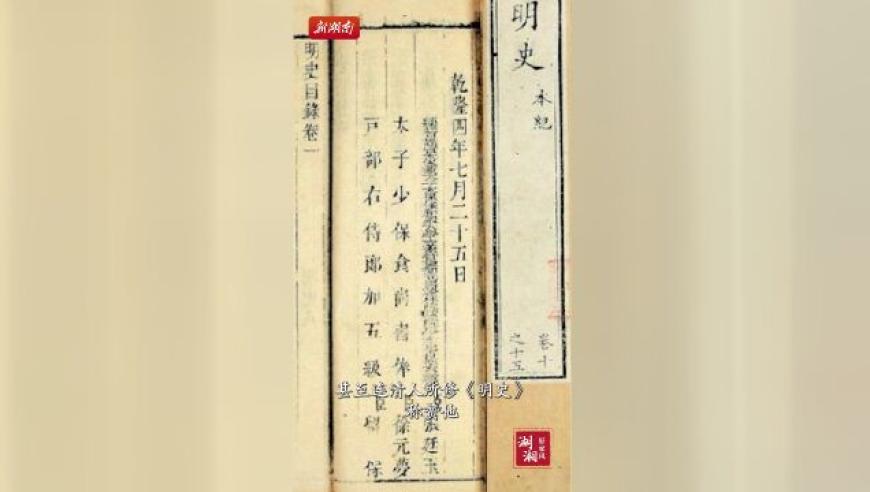 新湖南
明史
本紀
卷十
之十五
乾隆四年七月二十五日
張廷玉
太子少保食尚書俸臣徐元夢
戸部右侍郎加五級臣留保
明史目錄卷一
甚至连清人所修《明史》
称赞他
湖湘